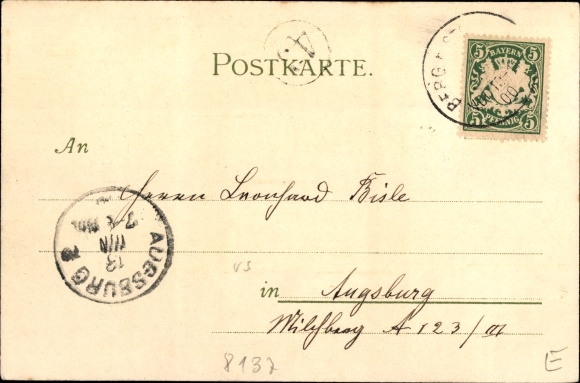 POSTKARTE.
5 BAYERN 5
5 PFENNIG 5
BERG
00
An
Herrn Leonhard Bisle
AUGSBURG
13
VIII
7-8 Nm.
in Augsburg
Milchberg A 123/III
vs
8137
E